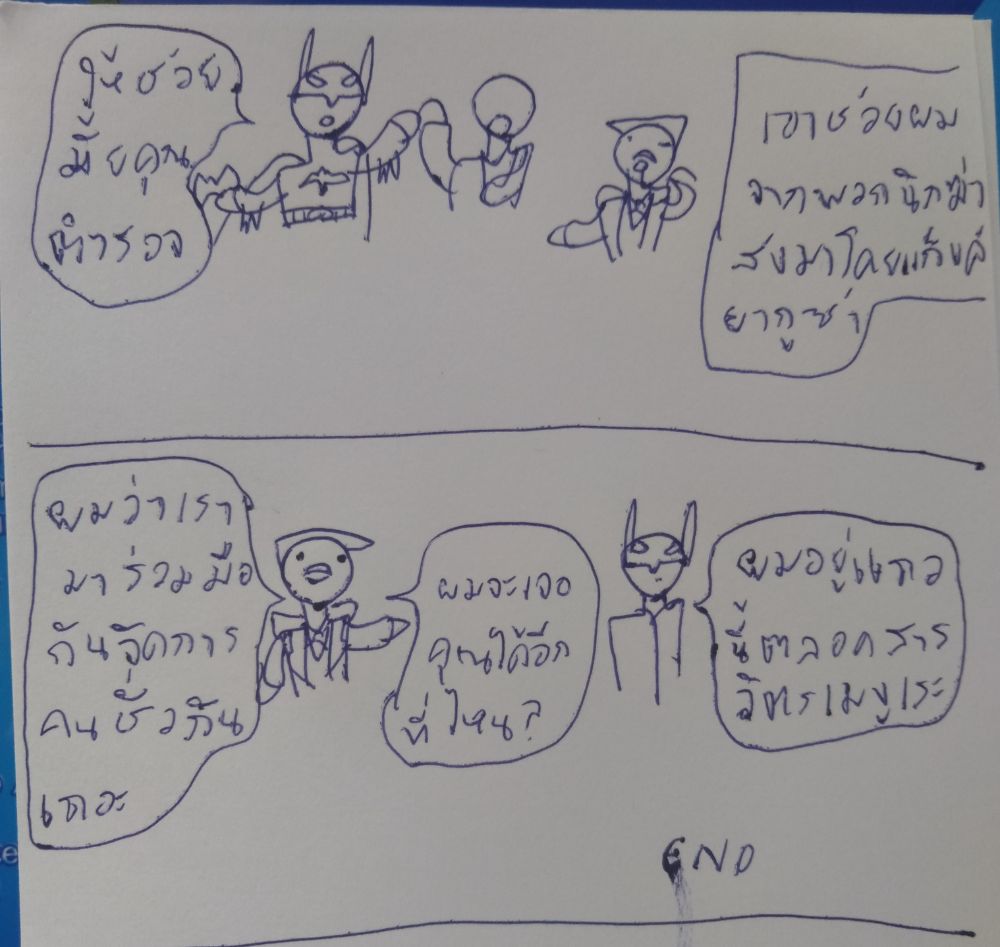 ให้ช่วย
มั้ยคุณ
ตำรวจ
เขาช่วยผม
จากพวกนินจา
ส่งมาโดยแก๊งค์
ยากูซ่า
ผมว่าเรา
มาร่วมมือ
กันจัดการ
คนชั่วกัน
เถอะ
ผมจะเจอ
คุณได้อีก
ที่ไหน?
ผมอยู่แถว
นี้ตลอดสาร
วัตรเมงูเระ
END